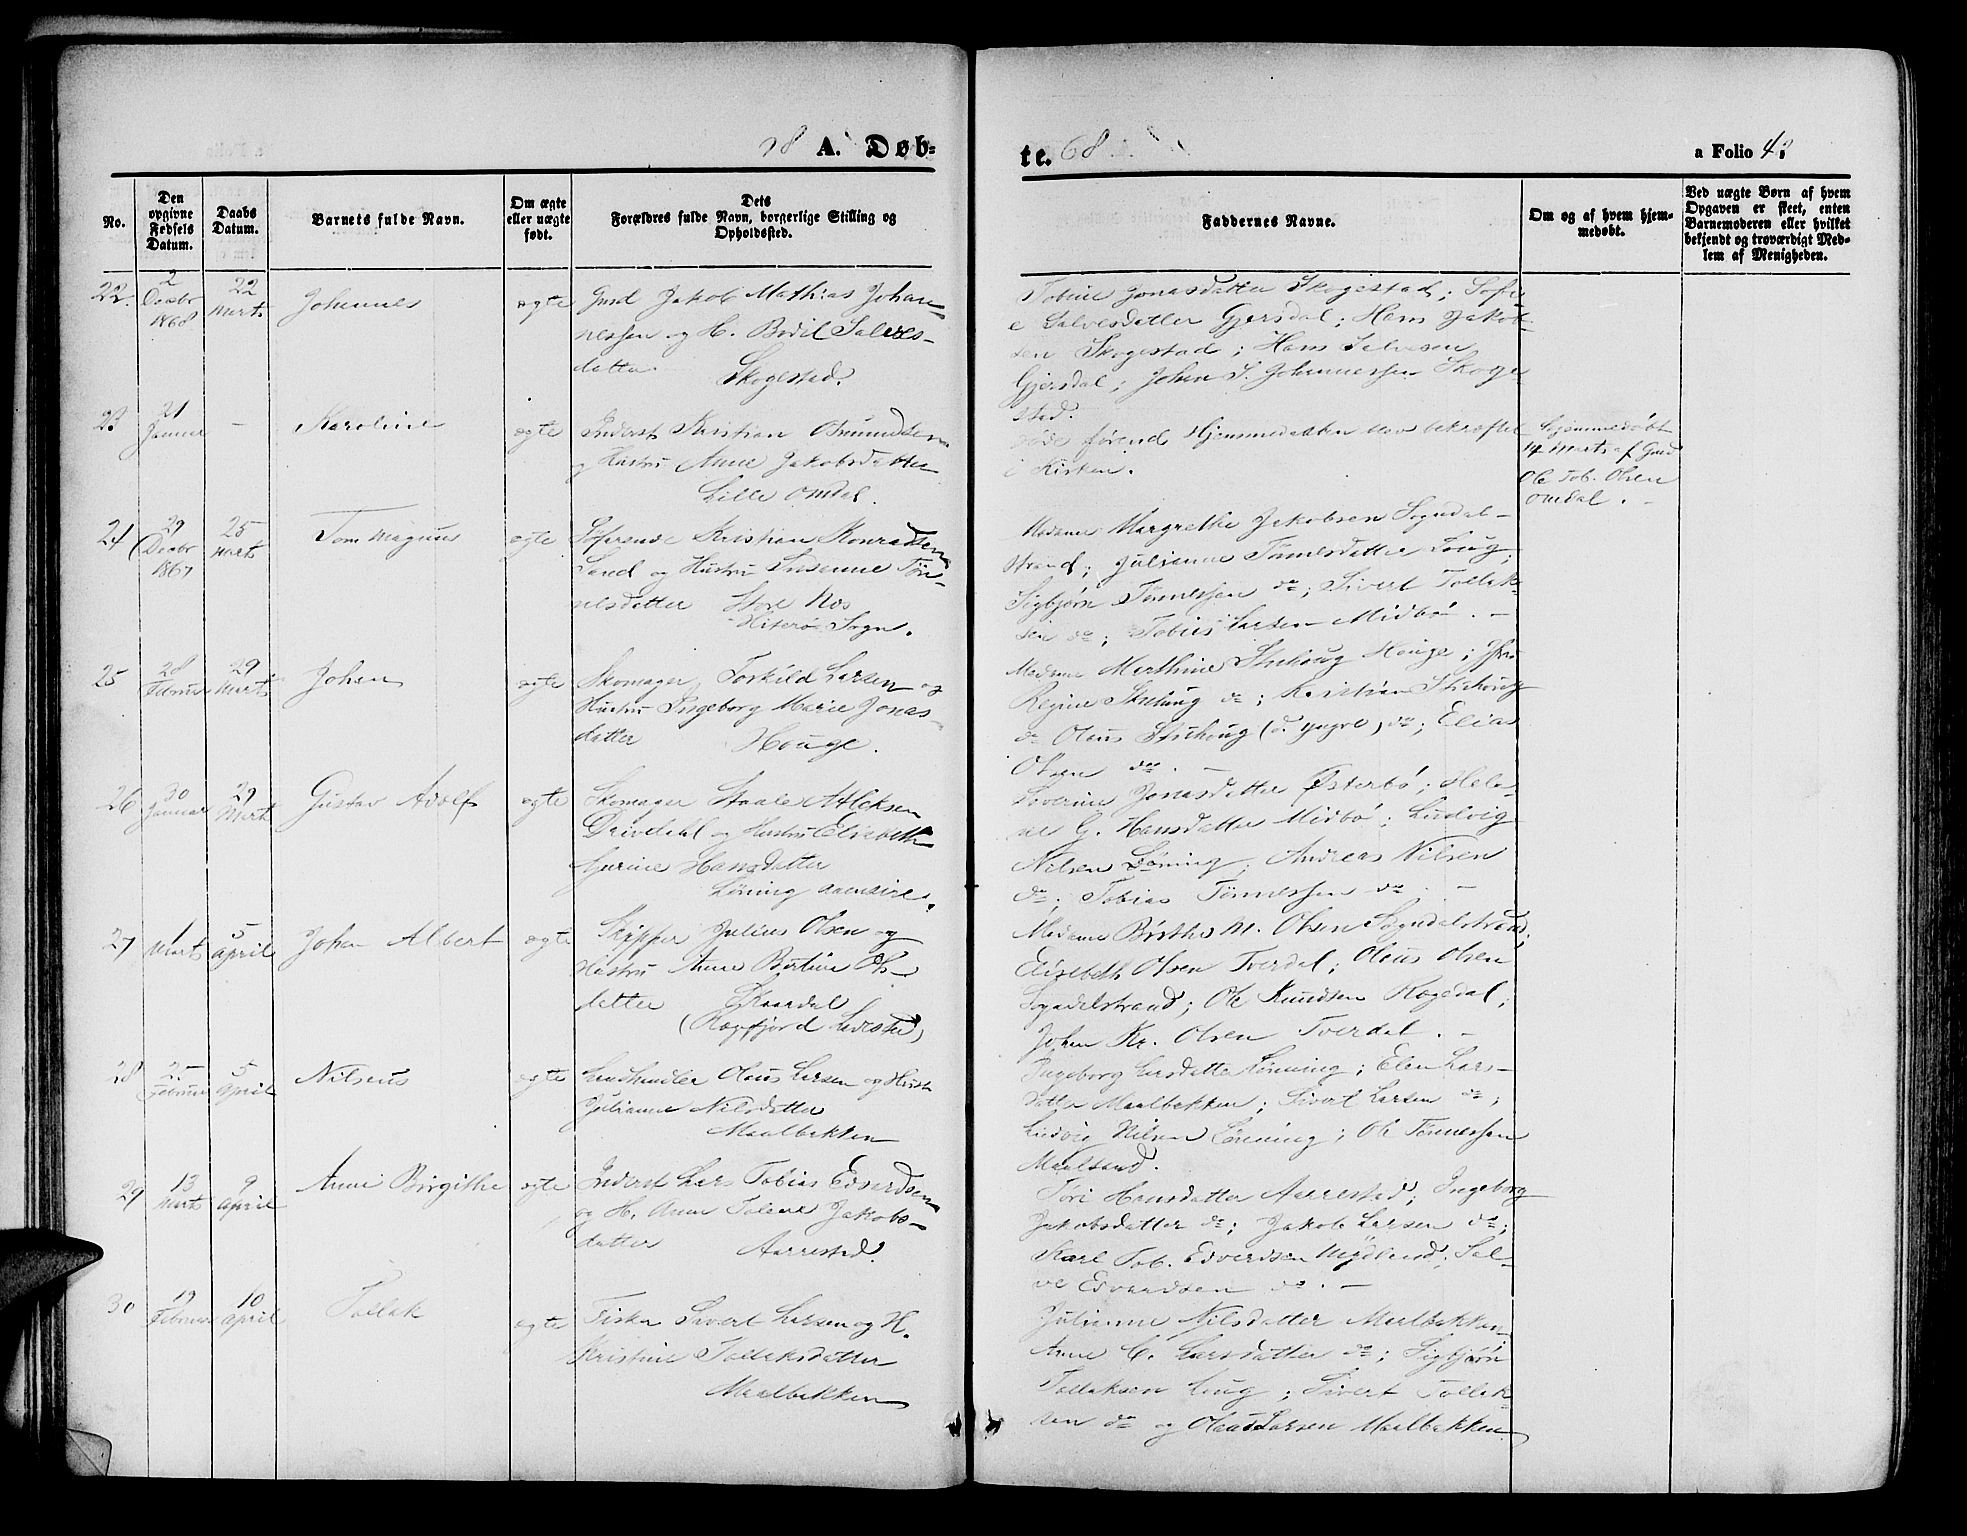 A. Døb-
te. 68
a Folio 4
No.
Den
opgivne
Fødsels
Datum.
Daabs
Datum.
Barnets fulde Navn.
Om ægte
eller uægte
født.
Dets
Forældres fulde Navn, borgerlige Stilling og
Opholdssted.
Faddernes Navne.
Om og af hvem hjem-
medøbt.
Ved uægte Børn af hvem
Opgaven er skeet, enten
Barnemoderen eller hvilket
bekjendt og troværdigt Med-
lem af Menigheden.
22.
2
Decbr
1868
22
Marts
Johannes
ægte
Gmd Jakob Mathias Johan-
nessen og H. Bodil Salves-
datter
Skogestad.
Tobine Jonasdatter Skogestad; Sofi-
e Salvesdatter Gjersdal; Hans Jakob-
sen Skogestad; Hans Salvesen
Gjersdal; Johan S. Johannessen Skoge-
stad.
23
21
Januar
-
Karoline
ægte
Inderst Kristian Omundsen
og Hustru Anne Jakobsdatter
Lille Omdal.
døde førend Hjemmedaaben blev bekræftet
i Kirken.
Hjemmedøbt
14 Marts af Gmd
Ole Tob. Olsen
Omdal.
24
29
Decbr
1867
25
Marts
Tom Magnus
ægte
Loserende Kristian Konradsen
Sand og Hustru Susanne Tøn-
nesdatter Store Nes
Hiterø Sogn.
Madame Margrethe Jakobsen Sogndal-
strand; Julianne Tønnesdatter Loug;
Sigbjørn Tønnessen do; Sivert Tollak-
sen do; Tobias Larsen Midbø. -
25
28
Februar
29
Marts
Johan
ægte
Skomager Torkild Larsen og
Hustru Ingeborg Marie Jonas-
datter Houge.
Madame Marthine Stuhoug Houge;
Regine Stuhoug do; Kristian Stuhoug
do Olaus Stuhoug (d. yngre) do; Elias
Olsen do. -
26
30
Januar
29
Marts
Gustav Adolf
ægte
Skomager Staale Atleksen
Drivdahl og Hustru Elisabeth
Gurine Hansdatter
Løning
Soverine Jonasdatter Østerbø; Hele-
ne G. Hansdatter Midbø; Ludvig
Nilsen Løning; Andreas Nilsen
do; Tobias Tønnessen do. -
27
1
Marts
5
April
Johan Albert
ægte
Skipper Julius Olsen og
Hustru Anne Bertine Ols-
datter Skaardal
(Ragefjord Ladested)
Madame Børthe M. Olsen Sogndalstrand;
Elisebeth Olsen Tverdal; Olaus Olsen
Sogndalstrand; Ole Knudsen Rogedal;
Johan Kr. Olsen Tverdal. -
28
25
Februar
5
April
Nilseus
ægte
Landhandler Olaus Larsen og Hustru
Julianne Nilsdatter
Maalbakken
Ingeborg Larsdatter Lønning; Elen Lars-
datter Maalbakken; Sivert Larsen do;
Ludvig Nilsen Lønning; Ole Tønnessen
Maalsand.
29
13
Marts
9
April
Anne Birgithe
ægte
Inderst Lars Tobias Edvardsen
og H. Anne Tolene Jakobs-
datter Aarrestad.
Tori Hansdatter Aarrestad; Ingeborg
Jakobsdatter do; Jakob Larsen do;
Karl Tob. Edvardsen Mydland; Sal-
ve Edvardsen do. -
30
19
Februar
10
April
Tollak
ægte
Fisker Sivert Larsen og H.
Kristine Tollaksdatter
Maalbakken
Julianne Nilsdatter Maalbakken;
Anne C. Larsdatter do; Sigbjørn
Tollaksen Loug; Sivert Tollak-
sen do og Olaus Larsen Maalbakken